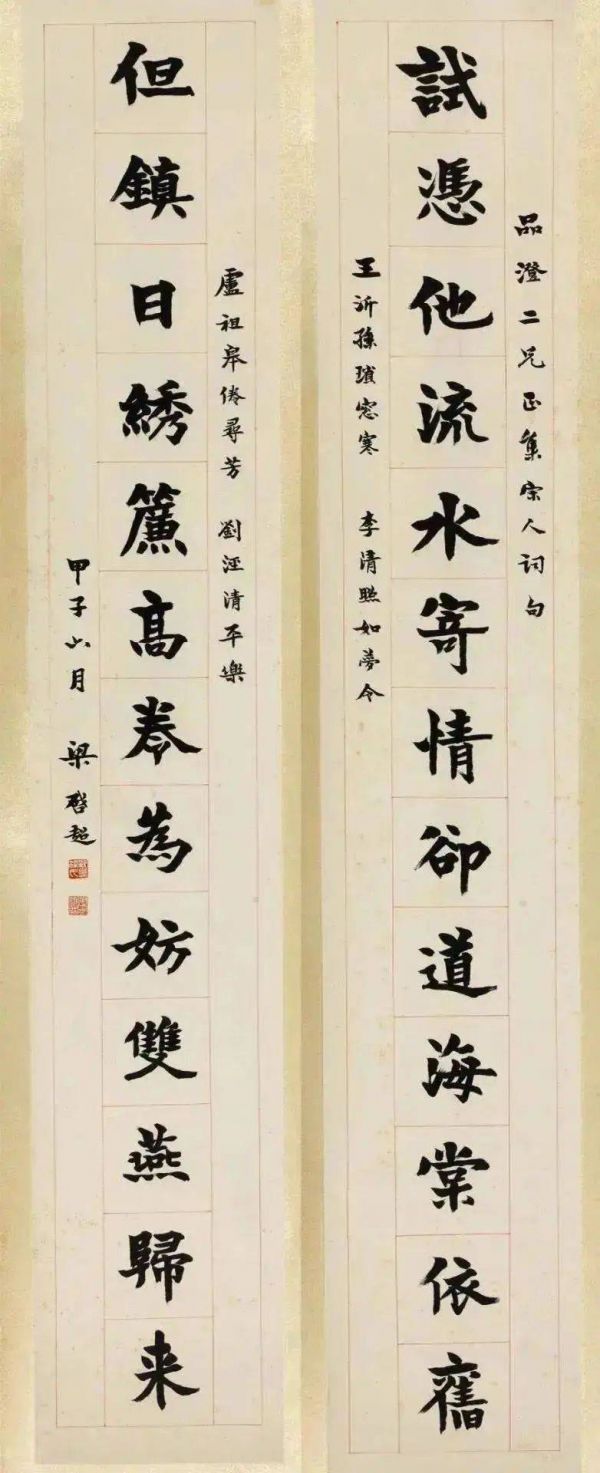 品澄二兄正集宋人詞句
試憑他流水寄情卻道海棠依舊
王沂孫瑣窓寒 李清照如夢令
盧祖皋倦尋芳 劉涇清平樂
但鎮日綉簾髙卷為妨雙燕歸来
甲子六月 梁啓超